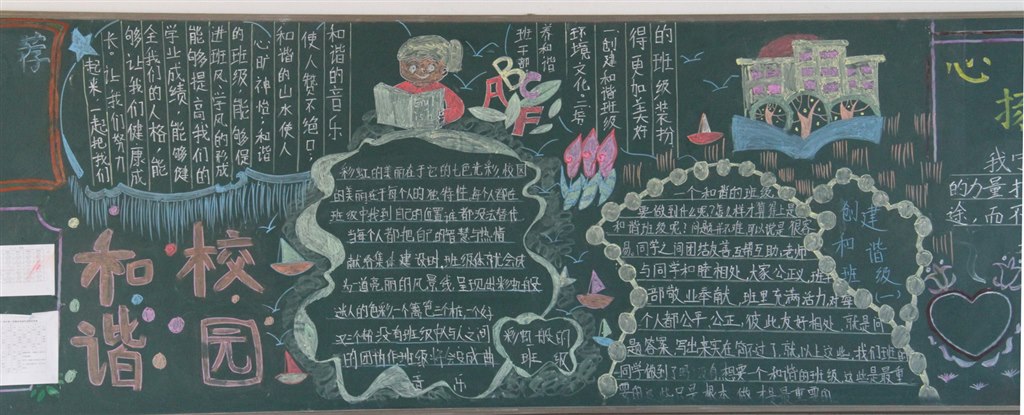 荐
和谐的音乐
使人赞不绝口；
和谐的山水使人
心旷神怡；和谐
的班级，能够促
进班风、学风的形成
能够提高我们的
学业成绩，能够健
全我们的人格，能
够让我们健康成
长。让我们努力
起来，一起把我们
的班级装扮
得更加美好
一、创建和谐班级
环境文化，三培
养和谐
班干部
ABCF
校园
和谐
彩虹的美丽在于它的七色光彩，校园
的美丽在于每个人的独特性，每人都在
班级中找到自己的位置，谁都没法替代
当每个人都把自己的智慧与热情
献给集体建设时，班级体就会成
为一道亮丽的风景线，呈现出彩虹般
迷人的色彩一个篱笆三个桩，一个好
汉三个帮，没有班级队与人之间
的团结作班级
音乐
彩虹般的
班级
一个和谐的班级
要做到什么呢？怎么样才算得上是
和谐班级呢！问题并不难，可以说是很容
易，同学之间团结友善互帮互助，老师
与同学和睦相处，大家公正义，班干
部敬业奉献，班里充满活力，对每
个人都公平，公正，彼此友好相处，就是问
题答案，写出来实在简不过了，就以上这些，我们班的
同学做到了吗 想要一个和谐的班级，这些是最重
要的
创建
和谐
班级
（一）
心
扬
我
的力量
途，而不